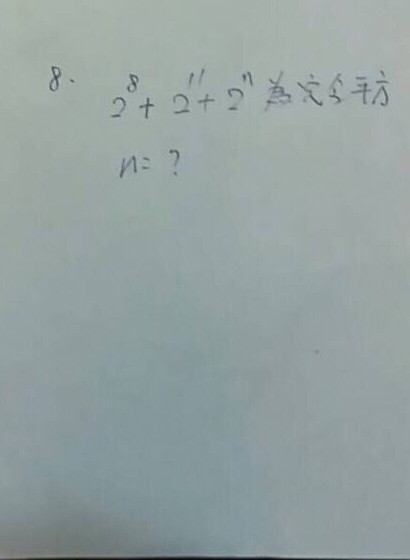 8. 2⁸ + 2¹¹ + 2ⁿ 為完全平方
n = ?